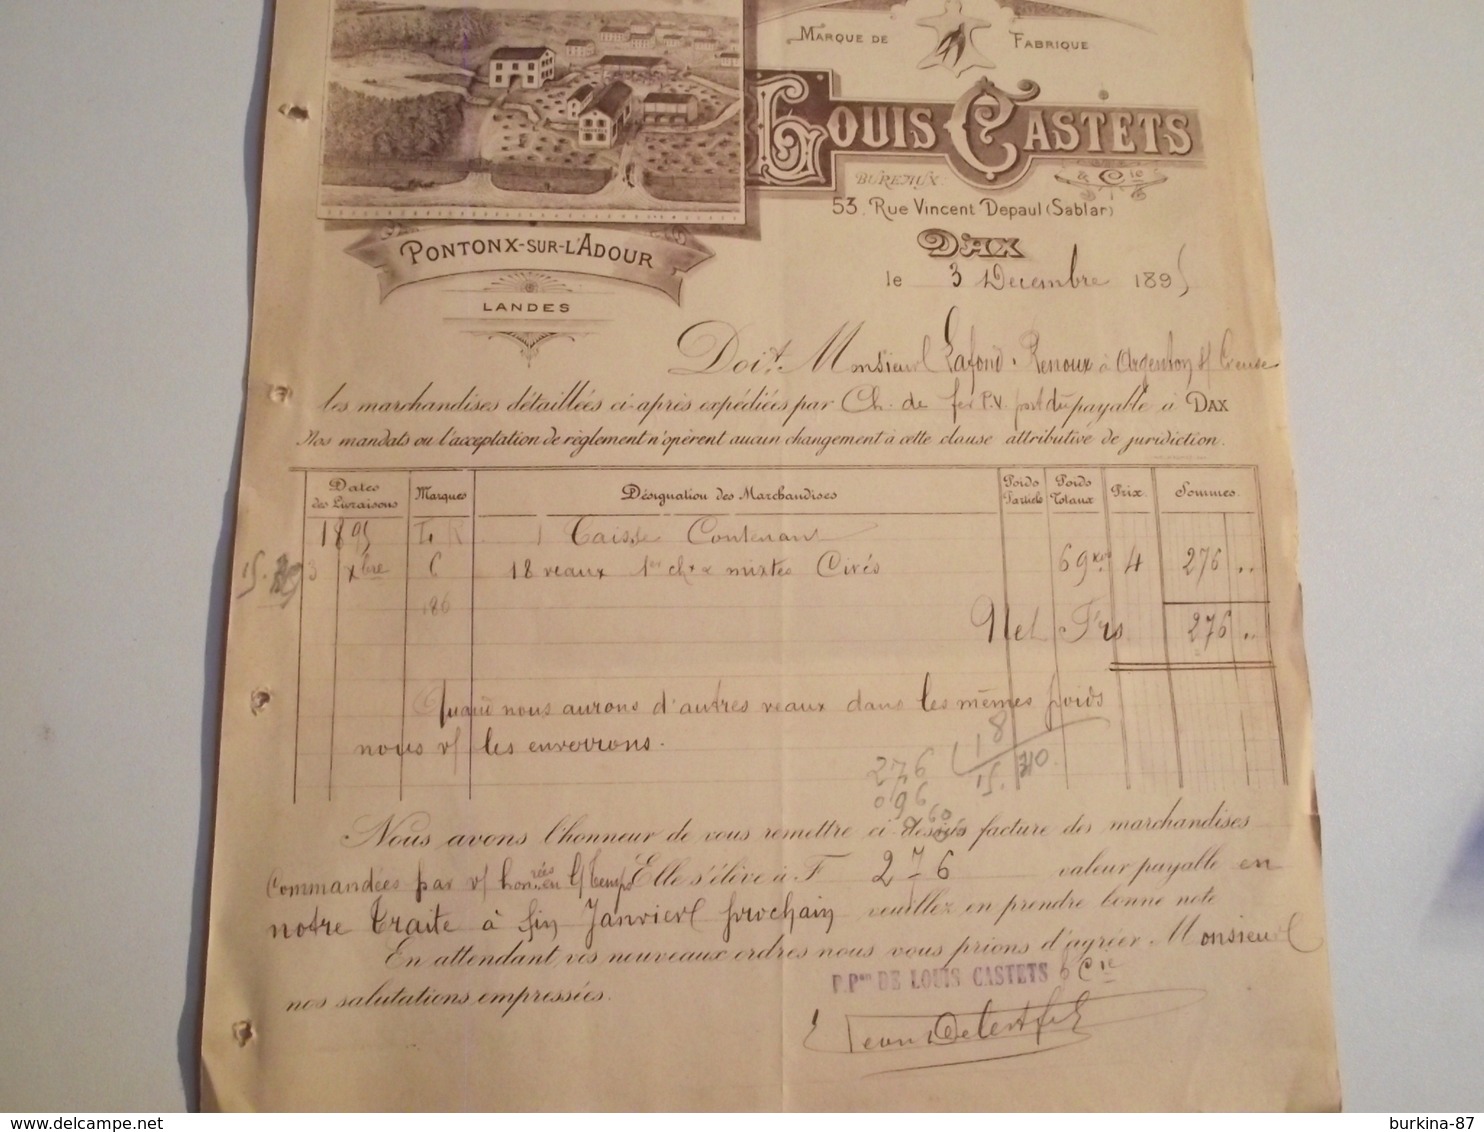 MARQUE DE FABRIQUE
LOUIS CASTETS
& Cie
BUREAUX
53, RUE VINCENT DEPAUL (SABLAR)
DAX
PONTONX-SUR-L'ADOUR
LANDES
le 3 Decembre 1895
Doit Monsieur Lafond-Renoux à Argenton s/ Creuse
les marchandises détaillées ci-après expédiées par Ch. de fer P.V. port dû payable à DAX
Nos mandats ou l'acceptation de règlement n'opèrent aucun changement à cette clause attributive de juridiction.
Dates des Livraisons Marques Désignation des Marchandises Poids Partiels Poids Totaux Prix Sommes
1895 L R 1 Caisse Contenant
3 xbre 6 18 veaux 1er chx mixtes Cirés 69 kos 4 276 ..
186
Net Frs 276 ..
Quand nous aurons d'autres veaux dans les mêmes poids
nous v/ les enverrons.
276 18
096 15.
60
Nous avons l'honneur de vous remettre ci-dessus facture des marchandises
Commandées par v/ honorée Elle s'élève à F 276 valeur payable en
notre traite à fin Janvier prochain veuillez en prendre bonne note
En attendant vos nouveaux ordres nous vous prions d'agréer Monsieur
nos salutations empressées.
P.Pon DE LOUIS CASTETS & Cie
burkina-87